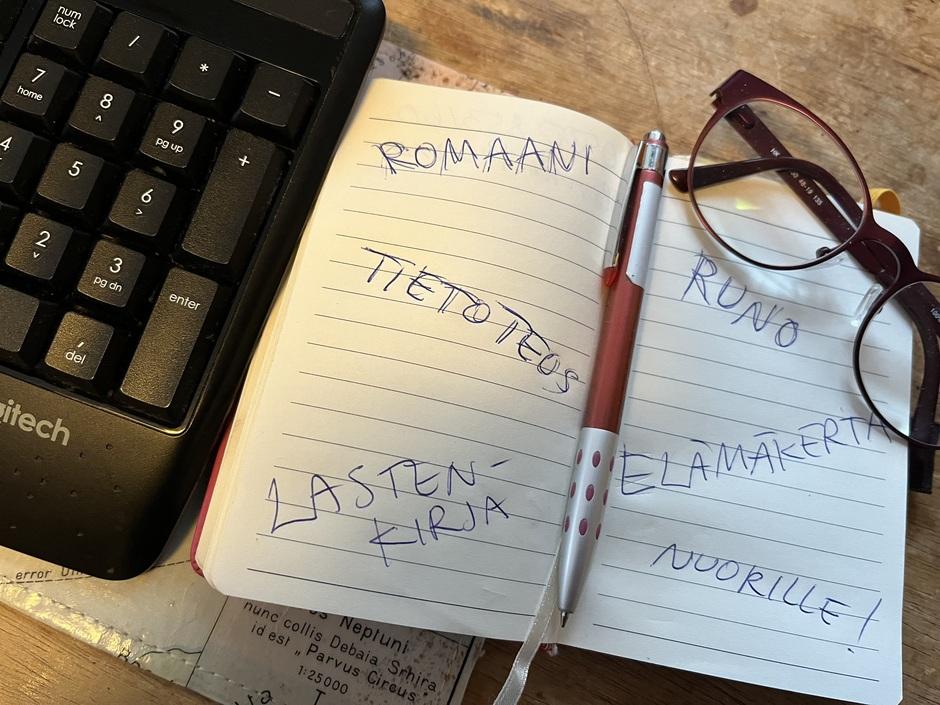 num
lock
/
*
-
7
home
8
^
9
pg up
+
4
5
6
>
2
v
3
pg dn
enter
,
del
gitech
ROMAANI
TIETOTEOS
LASTEN-
KIRJA
RUNO
ELÄMÄKERTA
NUORILLE!
error
Neptuni
nunc collis Debaia Srhira
id est „Parvus Circus"
1:25000